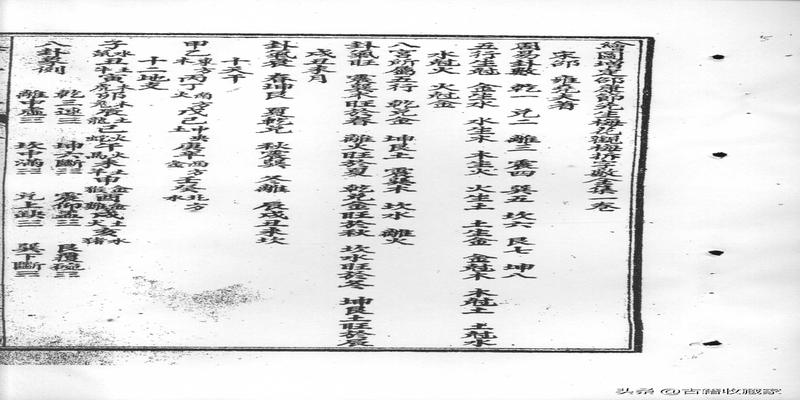 繪圖增定邵康節先生梅花觀梅拆字數全集一卷
宋邵 雍堯夫著
周易卦數 乾一 兌二 離三 震四 巽五 坎六 艮七 坤八
五行生尅 金生水 水生木 木生火 火生土 土生金 金尅木 木尅土 土尅水
水尅火 火尅金
八宮所屬五行 乾兌金 坤艮土 震巽木 坎水 離火
卦氣旺 震巽木旺於春 離火旺於夏 乾兌金旺於秋 坎水旺於冬 坤艮土旺於辰
戌丑未月
卦氣衰 春坤艮 夏乾兌 秋震巽 冬離 辰戌丑未坎
十天干
甲乙東方木 丙丁南方火 戊己中央土 庚辛西方金 壬癸北方水
十二地支
子水鼠丑土牛寅木虎卯木兔辰土龍巳火蛇午火馬未土羊申金猴酉金雞戌土犬亥水猪
八卦象例 乾三連☰ 坤六斷☷ 震仰盂☳ 艮覆碗☶
離中虛☲ 坎中滿☵ 兌上缺☱ 巽下斷☴
头条 @古籍收藏家